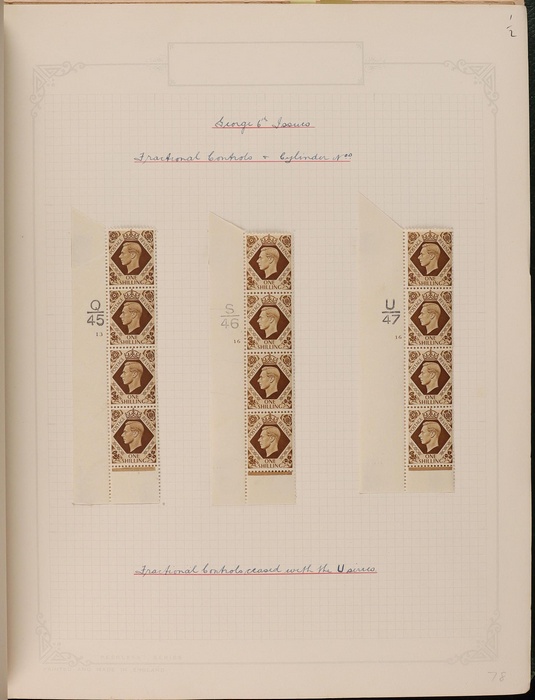 1/2
George 6th Issues
Fractional Controls & Cylinder Nos
Q
45
S
46
16
U
47
16
ONE
SHILLING
ONE
SHILLING
ONE
SHILLING
ONE
SHILLING
ONE
SHILLING
ONE
SHILLING
ONE
SHILLING
ONE
SHILLING
ONE
SHILLING
ONE
SHILLING
ONE
SHILLING
ONE
SHILLING
Fractional Controls ceased with the U series
78